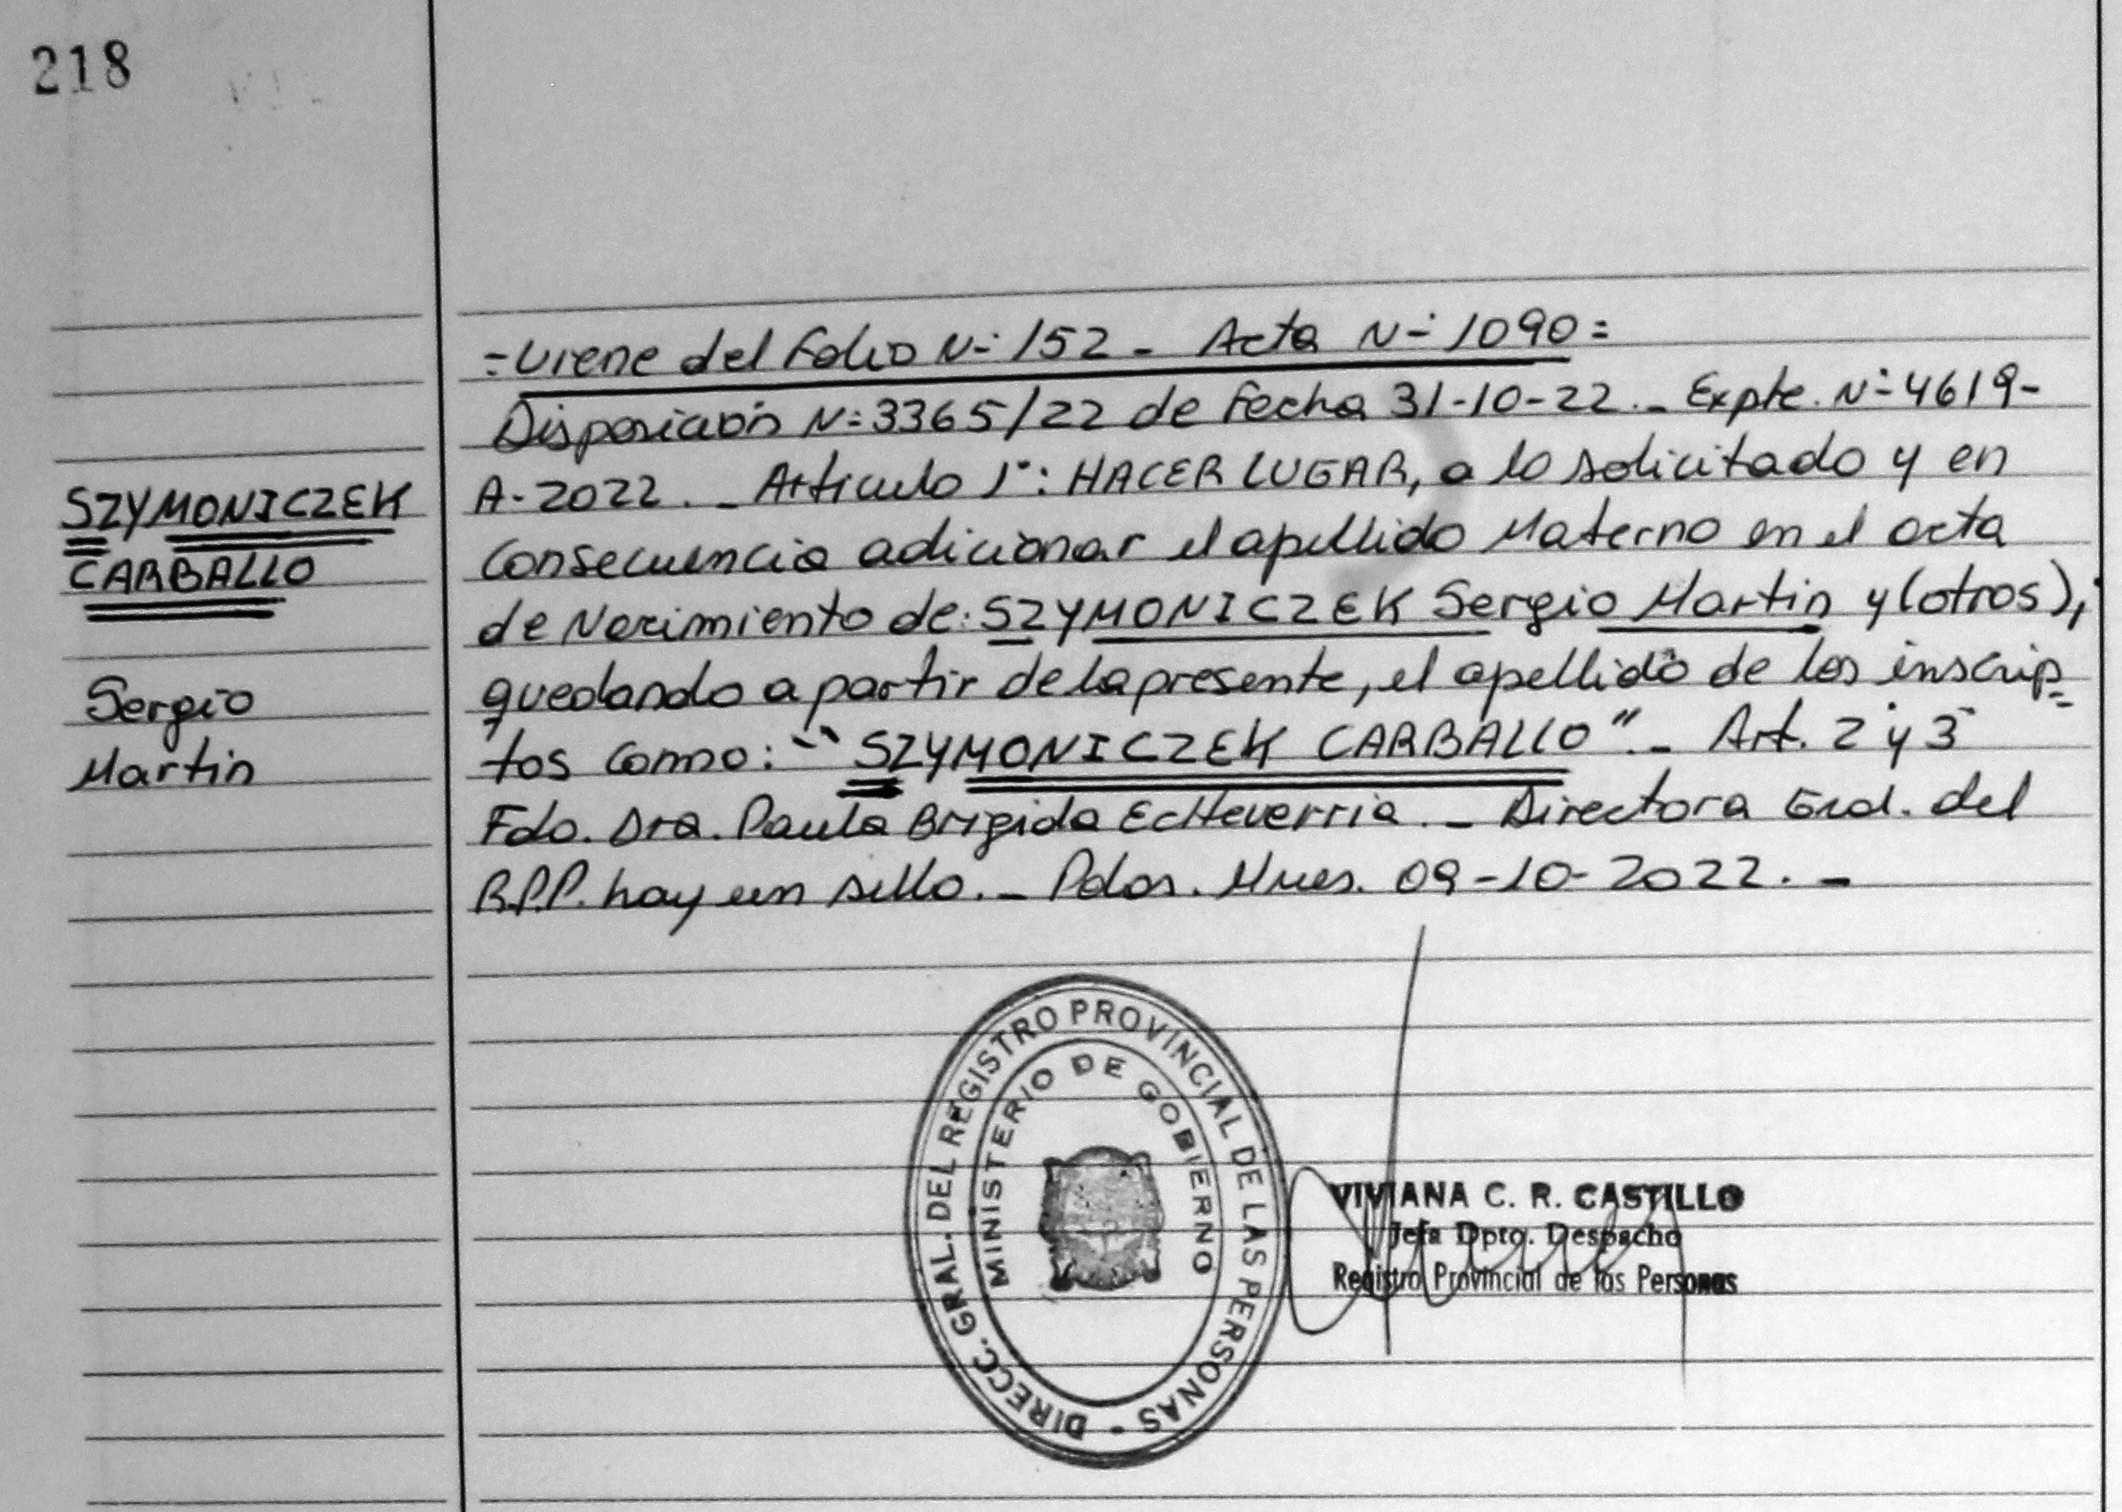 218
SZYMONICZEK
CARBALLO
Sergio
Martin
=Viene del Folio N- 152 - Acta N- 1090=
Disposición N=3365/22 de Fecha 31-10-22._ Expte. N-4619-
A-2022._ Articulo 1°: HACER LUGAR, a lo solicitado y en
Consecuencia adicionar el apellido Materno en el acta
de Nacimiento de: SZYMONICZEK Sergio Martin y (otros),
quedando a partir de la presente, el apellido de los inscrip=
tos como: "SZYMONICZEK CARBALLO"._ Art. 2 y 3
Fdo. Dra. Paula Brigida EcHeverria._ Directora Gral. del
R.P.P. hay un sello._ Pdas. Mnes. 09-10-2022._
DIRECC. GRAL. DEL REGISTRO PROVINCIAL DE LAS PERSONAS -
MINISTERIO DE GOBIERNO
VIVIANA C. R. CASTILLO
Jefa Dpto. Despacho
Registro Provincial de las Personas